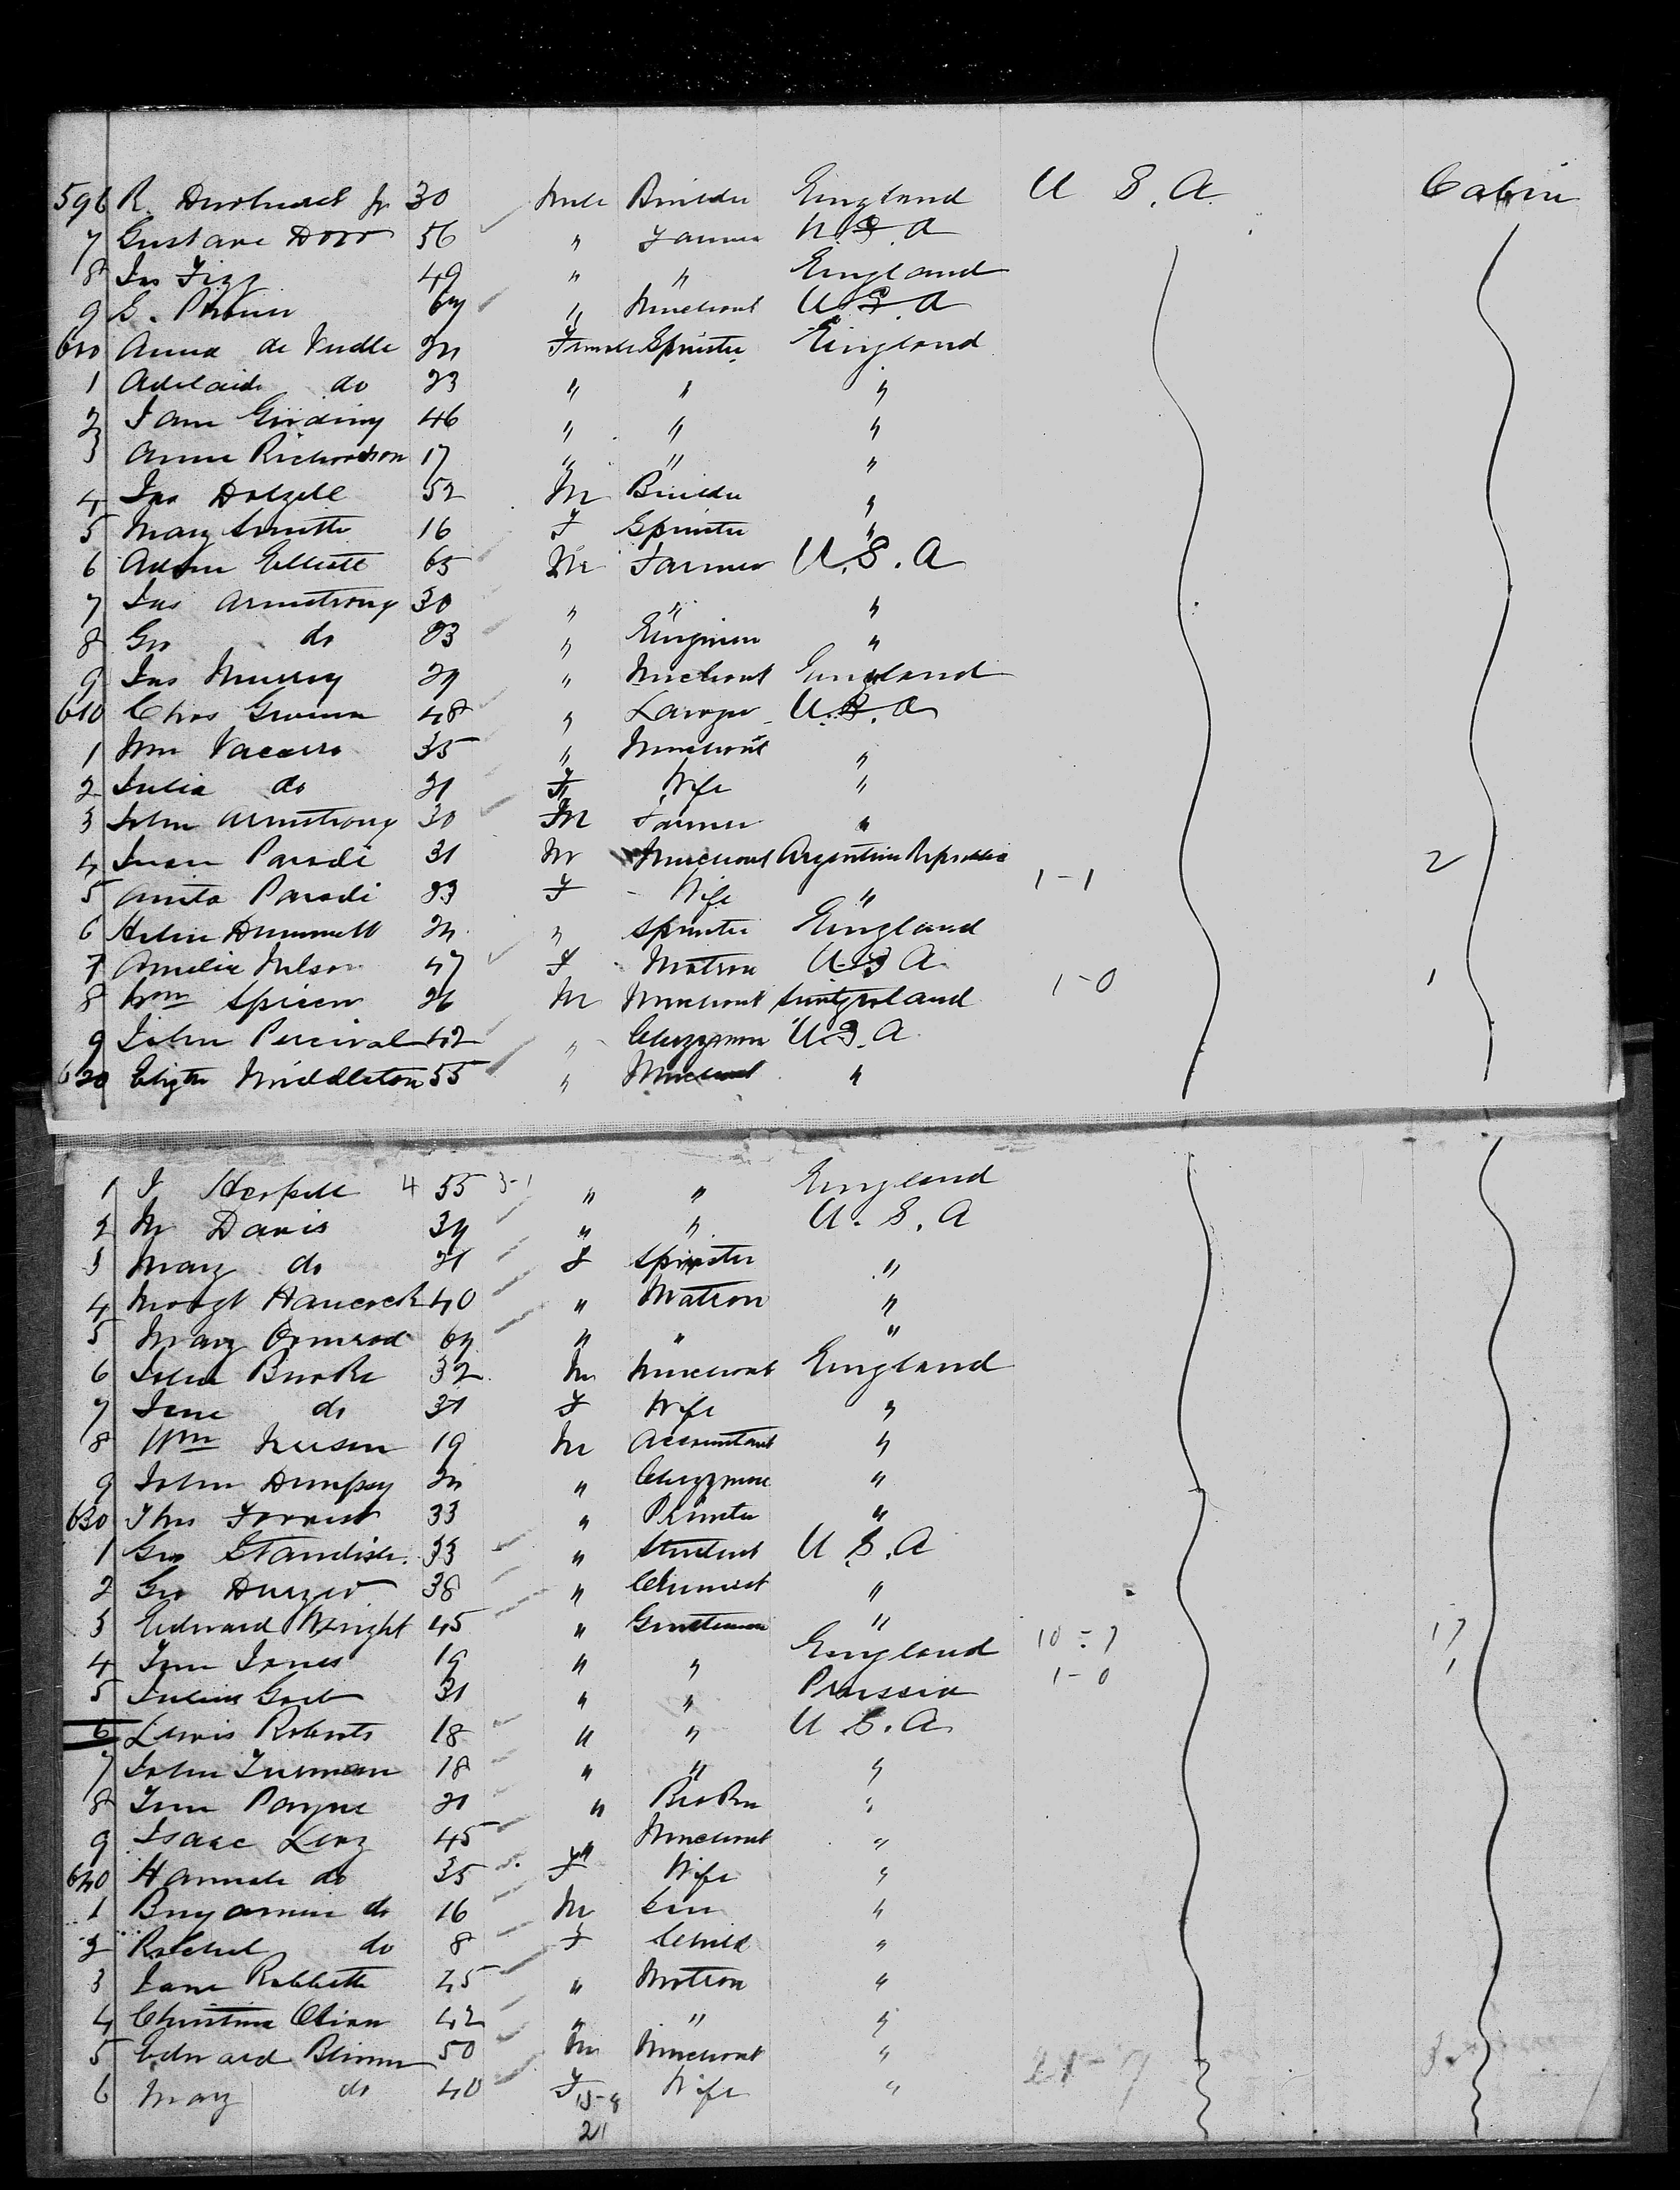 596 R. Durhurst Jr 30 Male Builder England U S. A. Cabin
7 Gustave Dorr 56 " Farmer U.S.A
8 Jas Figg 49 " " England
9 G. 64 " Merchant U.S.A
600 Anna de 20 Female Spinster England
1 Adelaide do 23 " " "
2 Jane 46 " " "
3 Annie Richardson 17 " " "
4 Jas Dalzell 52 M Builder "
5 Mary Smith 16 F Spinster "
6 Adam Elliott 65 M Farmer U.S.A
7 Jas Armstrong 30 " " "
8 Geo do 23 " Engineer "
9 Jas Murray 29 " Merchant England
610 Chas 48 " Lawyer U.S.A
1 Wm Vacarro 35 " Merchant "
2 Julia do 21 F Wife "
3 John Armstrong 30 M Farmer "
4 Juan Parodi 31 M Merchant Argentine Republic 2
5 Anita Parodi 23 F Wife " 1-1
6 Helen Dummett 20 " Spinster England
7 Amelia Nelson 47 F Matron U.S A
8 Wm 26 M Merchant Switzerland 1-0 1
9 John Percival 42 " Clergyman U.S.A
620 Elizth Middleton 55 " Merchant "
1 J 4 55 3-1 " " England
2 M Davis 34 " " U.S.A
3 Mary do 21 F Spinster "
4 Margt Hancock 40 " Matron "
5 Mary Ormrod 64 " " "
6 John Burke 32 M Merchant England
7 Jane do 31 F Wife "
8 Wm 19 M Accountant "
9 John Dempsey 20 " Clergyman "
630 Thos Forrest 33 " Printer "
1 Geo Standish 33 " Student U S.A
2 Geo 38 " Chemist "
3 Edward Wright 45 " Gentleman "
4 Jones 19 " " England 10-7 17
5 Julius 31 " " Prussia 1-0 1
6 Lewis Roberts 18 " " U S.A
7 John 18 " " "
8 Payne 21 " Broker "
9 Isaac Levy 45 " Merchant "
640 Hannah do 35 F Wife "
1 Benjamin do 16 M Son "
2 Rachel do 8 F Child "
3 Jane 45 " Matron "
4 Christina 42 " " "
5 Edward 50 M Merchant " 21-7
6 Mary do 40 F Wife "
13-8
21